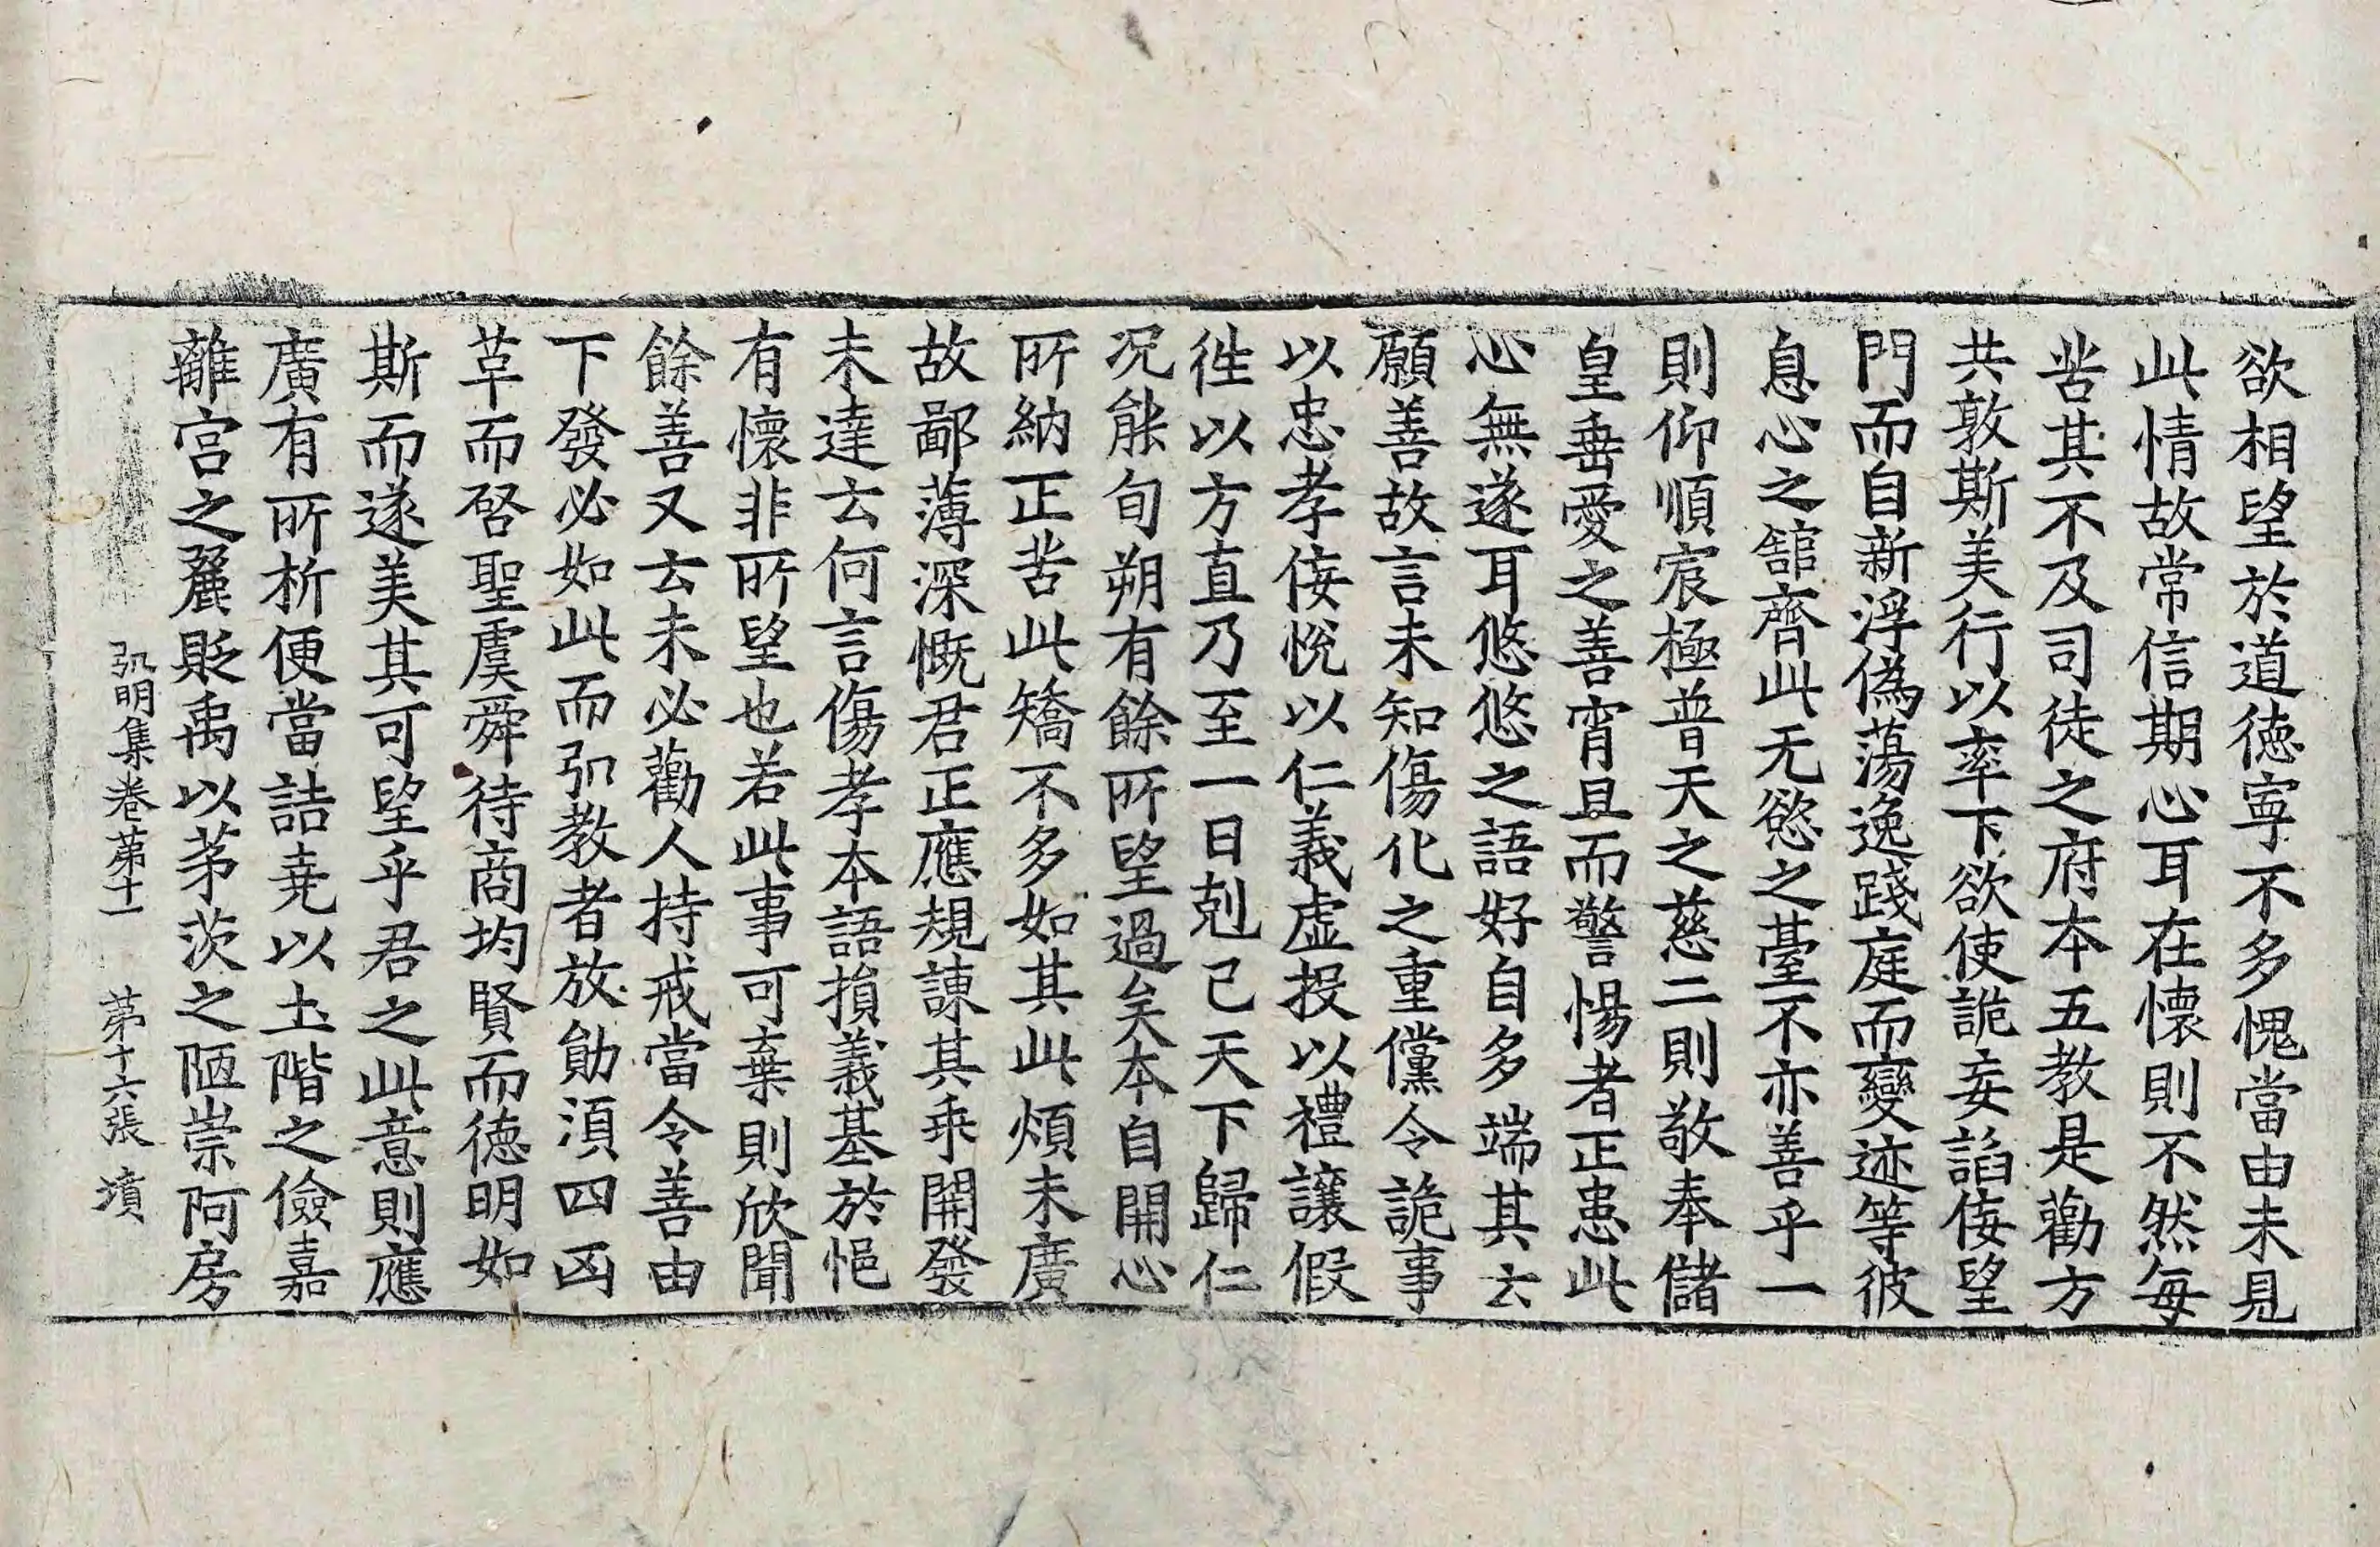 欲相望於道德寧不多愧當由未見
此情故常信期心耳在懷則不然每
苦其不及司徒之府本五教是勸方
共敦斯美行以率下欲使詭妄諂侫望
門而自新浮偽蕩逸踐庭而變迹等彼
息心之館齊此无慾之臺不亦善乎一
則仰順宸極普天之慈二則敬奉儲
皇垂愛之善宵旦而警惕者正患此
心無遂耳悠悠之語好自多端其云
願善故言未知傷化之重儻令詭事
以忠孝侫悅以仁義虛投以禮讓假
徃以方直乃至一日剋己天下歸仁
况能旬朔有餘所望過矣本自開心
所納正苦此矯不多如其此煩未廣
故鄙薄深慨君正應規諫其乖開發
未達云何言傷孝本語損義基於悒
有懷非所望也若此事可棄則欣聞
餘善又云未必勸人持戒當令善由
下發必如此而弘教者放勛湏四凶
革而啓聖虞舜待商均賢而德明如
斯而遂美其可望乎君之此意則應
廣有所析便當詰堯以土階之儉嘉
離宮之麗貶禹以茅茨之陋崇阿房
弘明集卷苐十一 苐十六張 墳